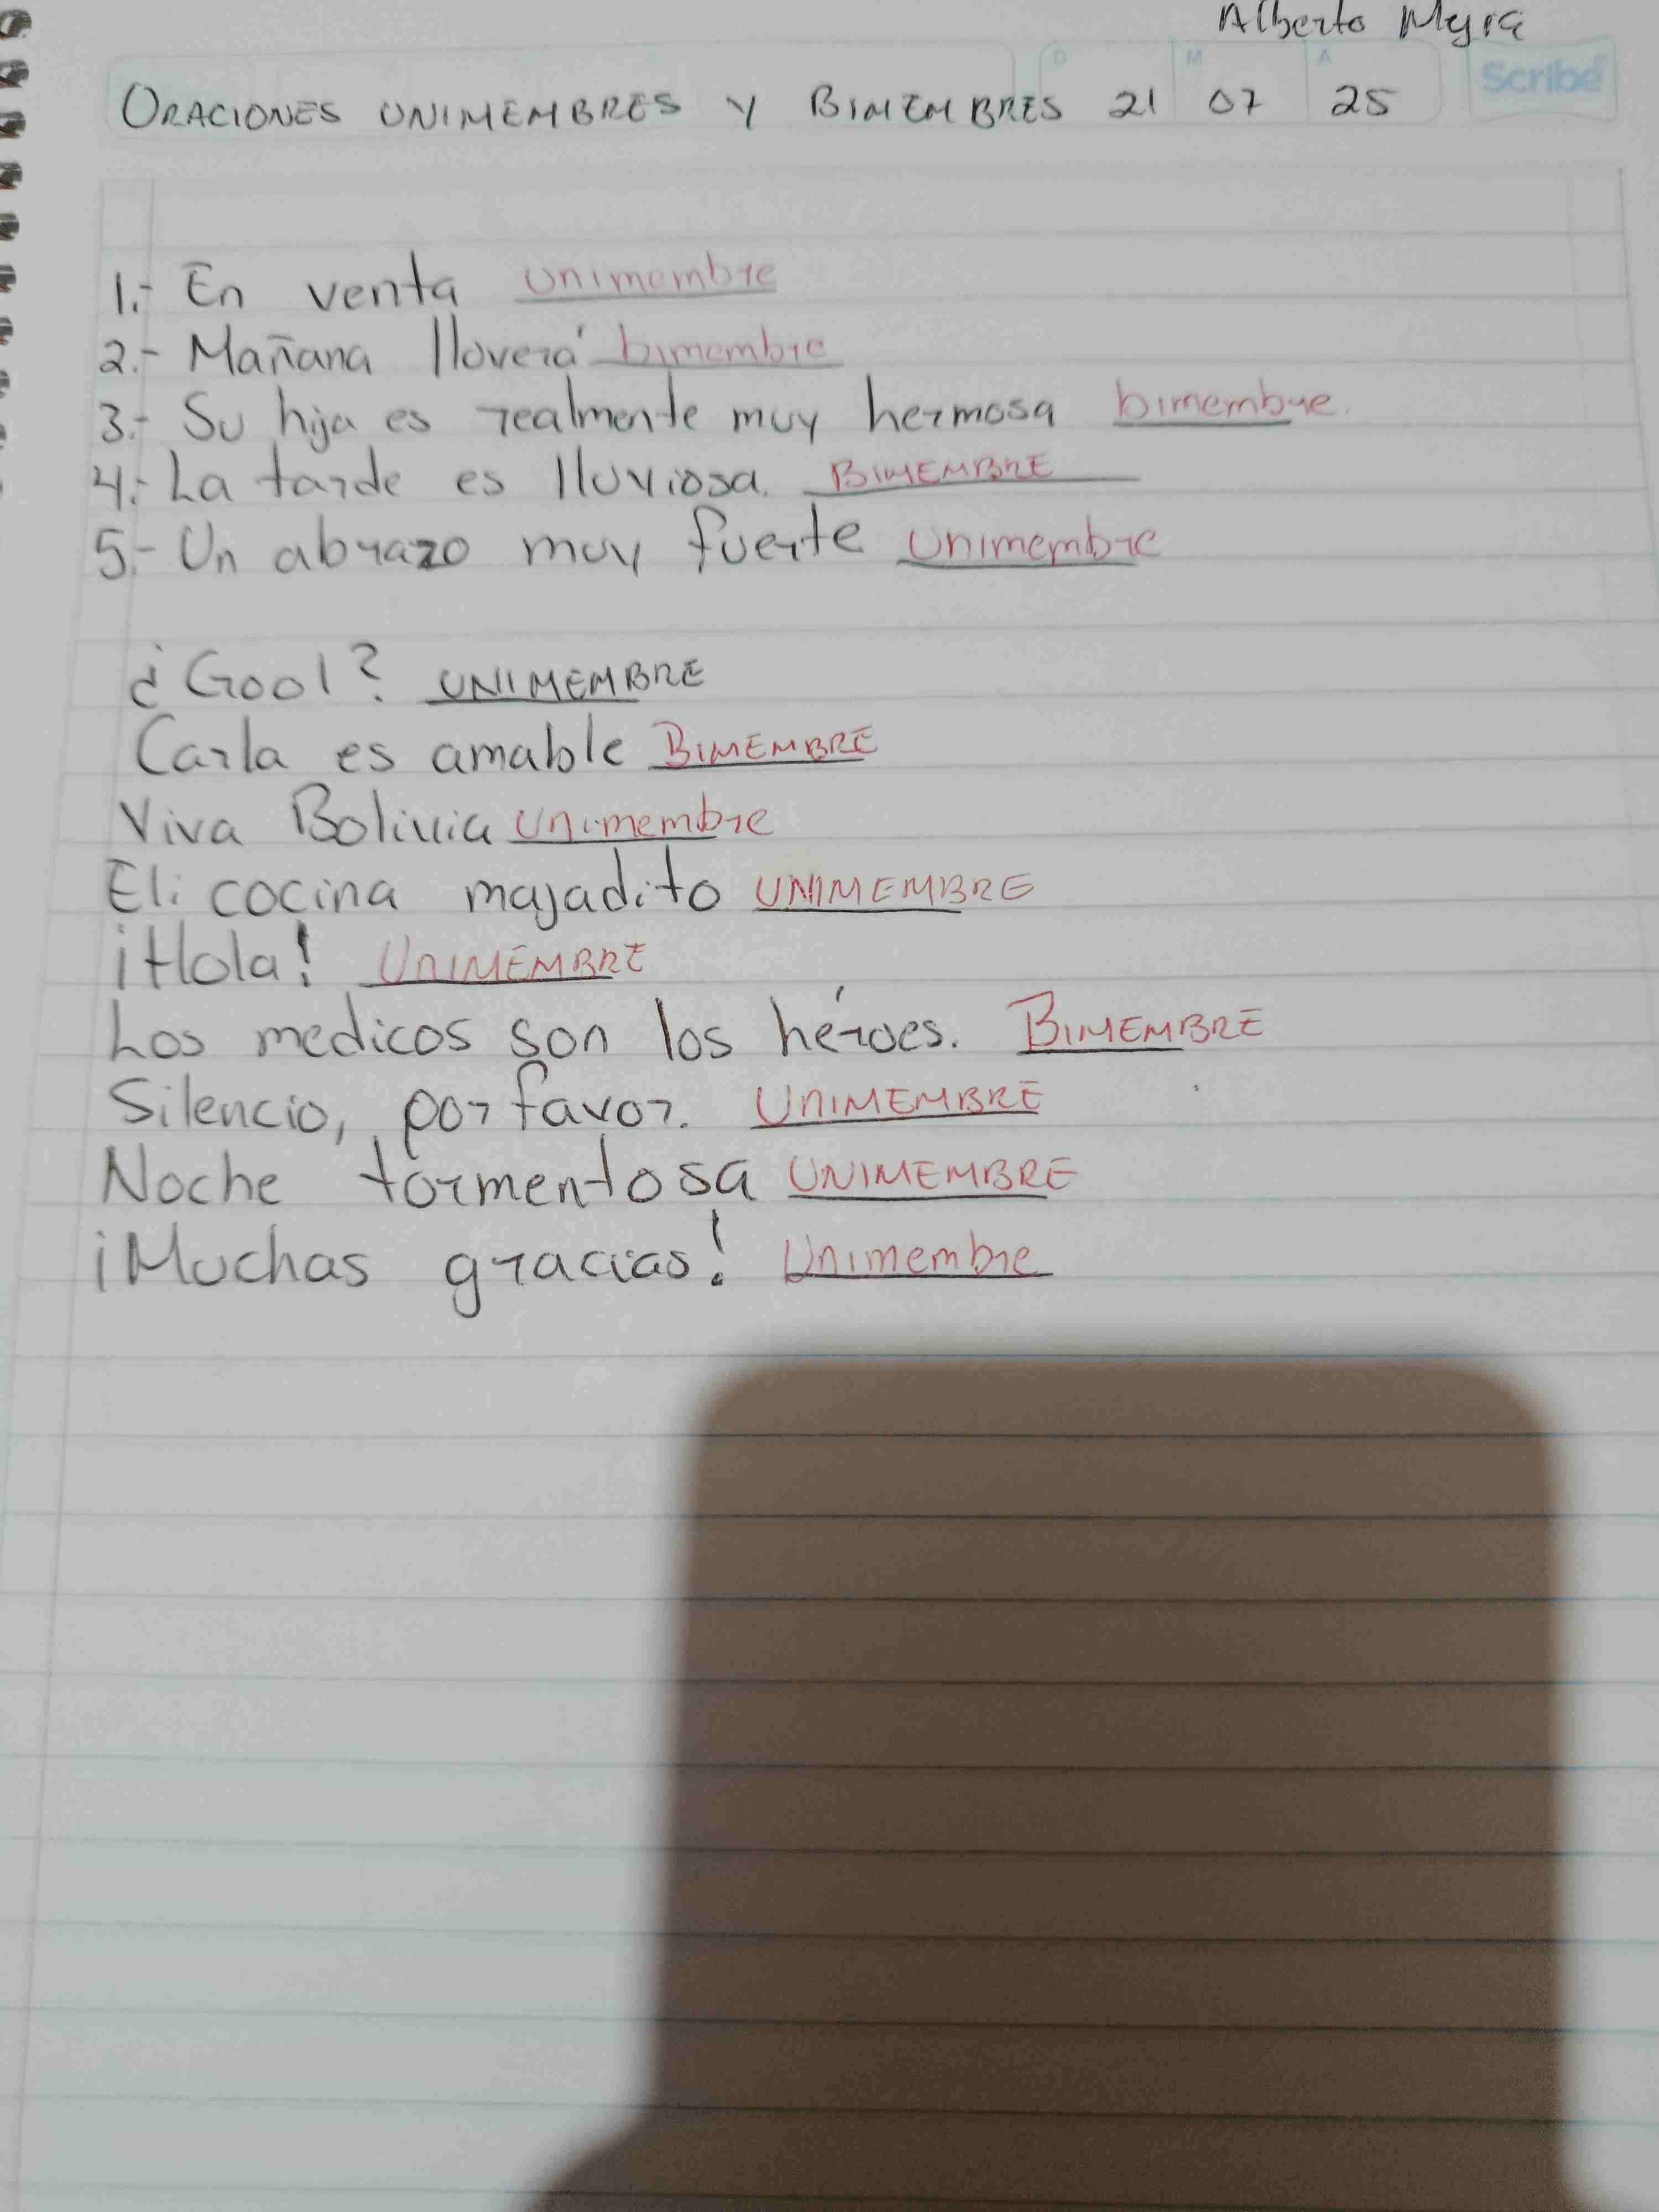 Alberto Mejia
D M A
Scribe
ORACIONES UNIMEMBRES Y BIMEMBRES 21 07 25
1.- En venta unimembre
2.- Mañana lloverá bimembre
3.- Su hija es realmente muy hermosa bimembre.
4.- La tarde es lluviosa. BIMEMBRE
5.- Un abrazo muy fuerte unimembre
¿Gool? UNIMEMBRE
Carla es amable BIMEMBRE
Viva Bolivia unimembre
Eli cocina majadito UNIMEMBRE
¡Hola! UNIMEMBRE
Los medicos son los héroes. BIMEMBRE
Silencio, por favor. UNIMEMBRE
Noche tormentosa UNIMEMBRE
¡Muchas gracias! Unimembre